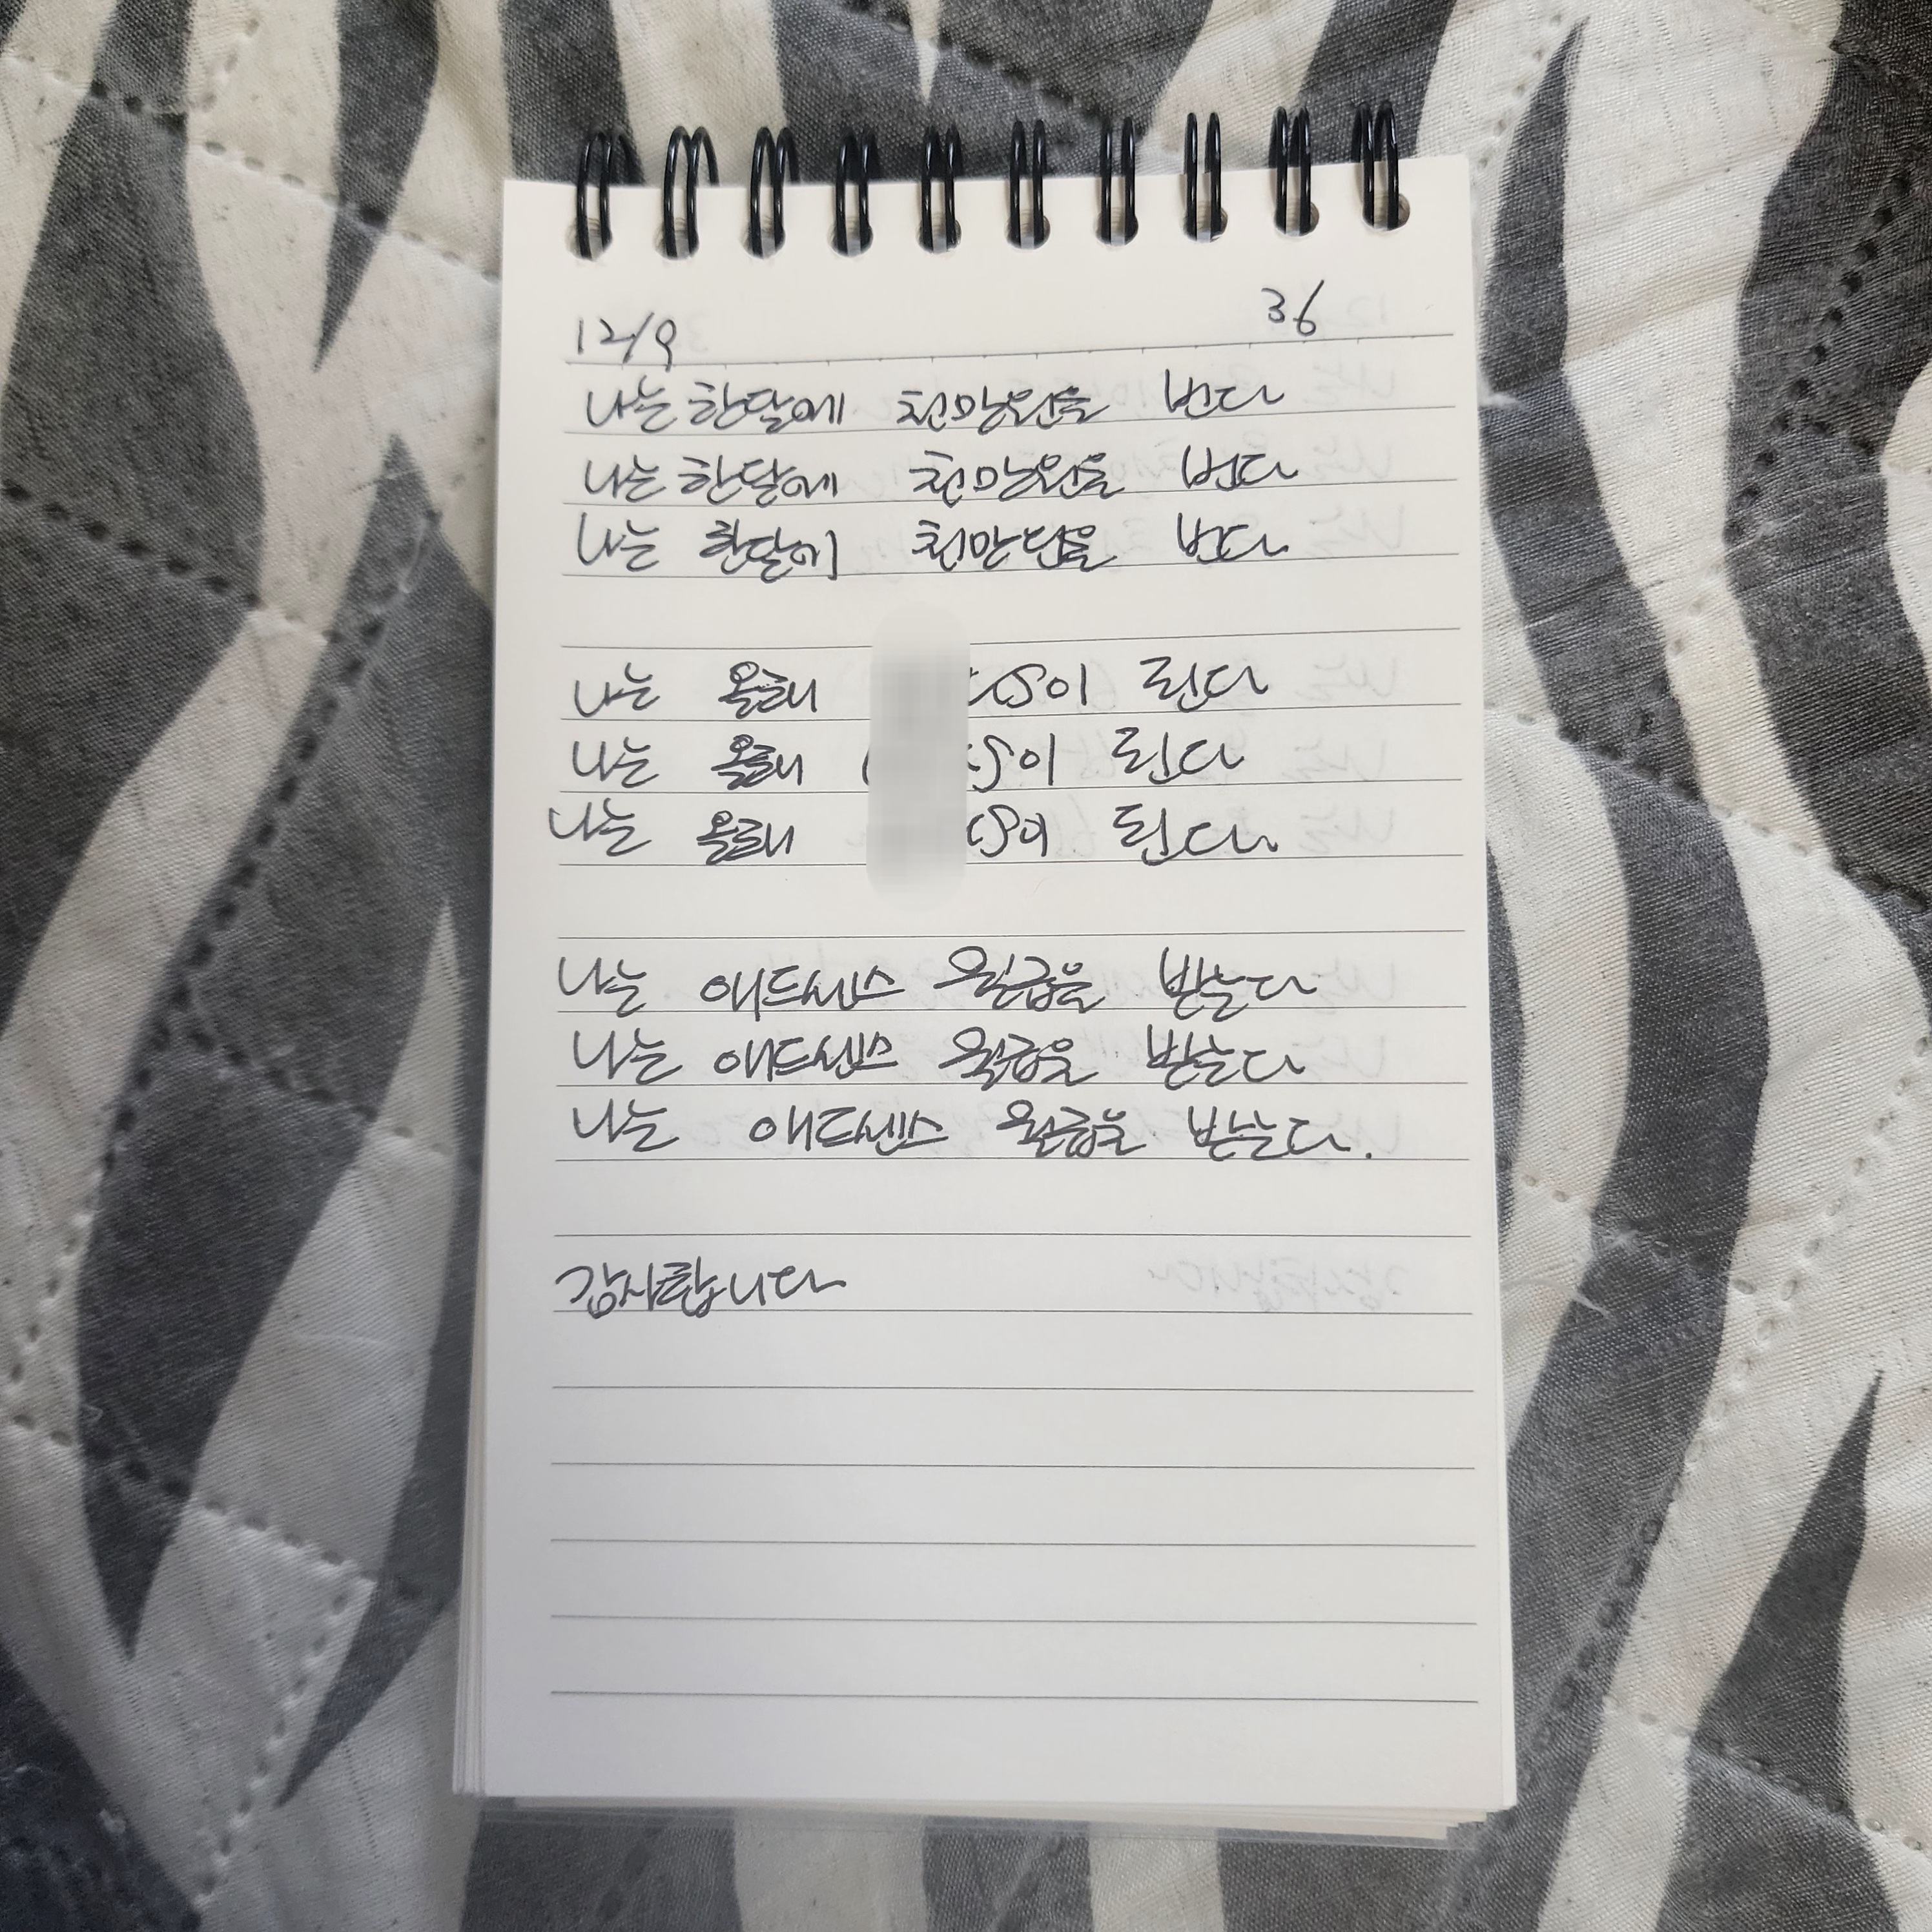 12/9 36
나는 한달에 천만원을 번다
나는 한달에 천만원을 번다
나는 한달에 천만원을 번다
나는 올해 이 된다
나는 올해 이 된다
나는 올해 이 된다.
나는 애드센스 월급을 받는다
나는 애드센스 월급을 받는다
나는 애드센스 월급을 받는다.
감사합니다